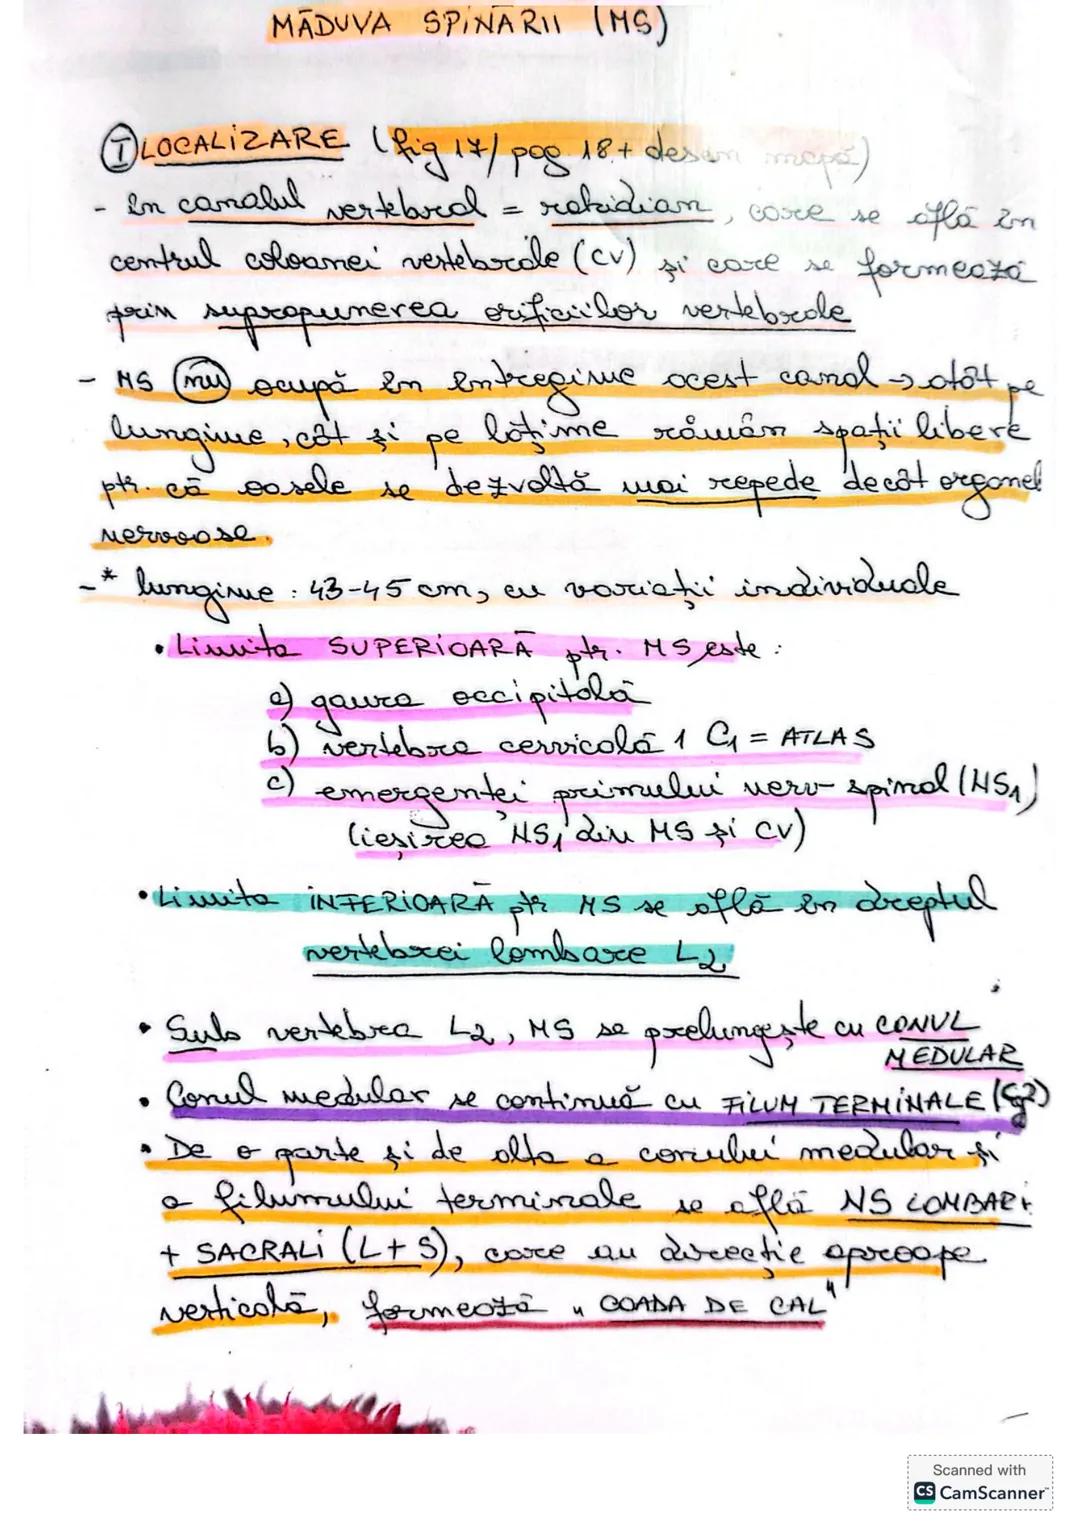 MĂDUVA SPINĂRII (MS)
I LOCALIZARE (fig 17/ pag 18 + desen mapă)
- în canalul vertebral = rahidian, care se află în
centrul coloanei vertebrale (CV) și care se formează
prin suprapunerea orificiilor vertebrale
- MS nu ocupă în întregime acest canal → atât pe
lungime, cât și pe lățime rămân spații libere
ptr. că oasele se dezvoltă mai repede decât organele
nervoase.
-* lungime : 43-45 cm, cu variații individuale
• Limita SUPERIOARĂ ptr. MS este :
a) gaura occipitală
b) vertebra cervicală 1 C1 = ATLAS
c) emergenței primului nerv spinal (NS1)
(ieșirea NS1 din MS și CV)
• Limita INFERIOARĂ ptr MS se află în dreptul
vertebrei lombare L2
• Sub vertebra L2, MS se prelungește cu CONUL
MEDULAR
• Conul medular se continuă cu FILUM TERMINALE
• De o parte și de alta a conului medular și
a filumului terminale se află NS LOMBARI
+ SACRALI (L+S), care au direcție aproape
verticală, formează „COADA DE CAL"
Scanned with
CS CamScanner